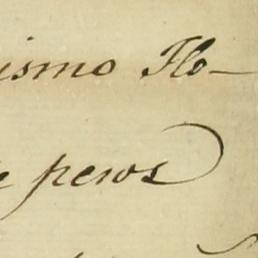 ismo Flo-
e pesos